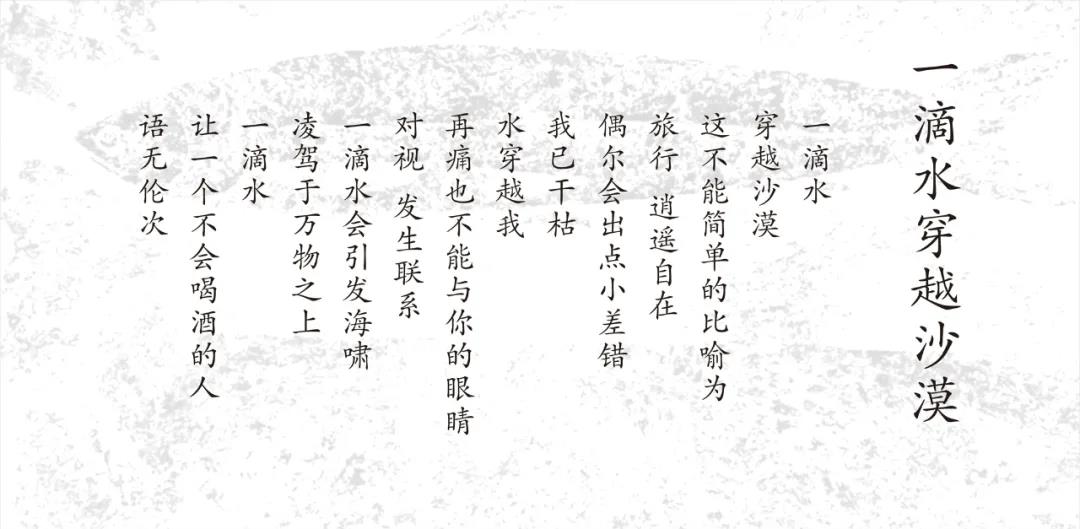 一滴水穿越沙漠
一滴水
穿越沙漠
这不能简单的比喻为
旅行 逍遥自在
偶尔会出点小差错
我已干枯
水穿越我
再痛也不能与你的眼睛
对视 发生联系
一滴水会引发海啸
凌驾于万物之上
一滴水
让一个不会喝酒的人
语无伦次